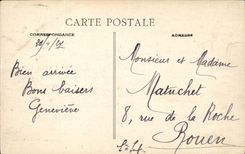 CARTE POSTALE
CORRESPONDANCE
ADRESSE
Bien arrivée
Bons baisers
Geneviève
Monsieur et Madame
Matuchet
8, rue de la Roche
Rouen